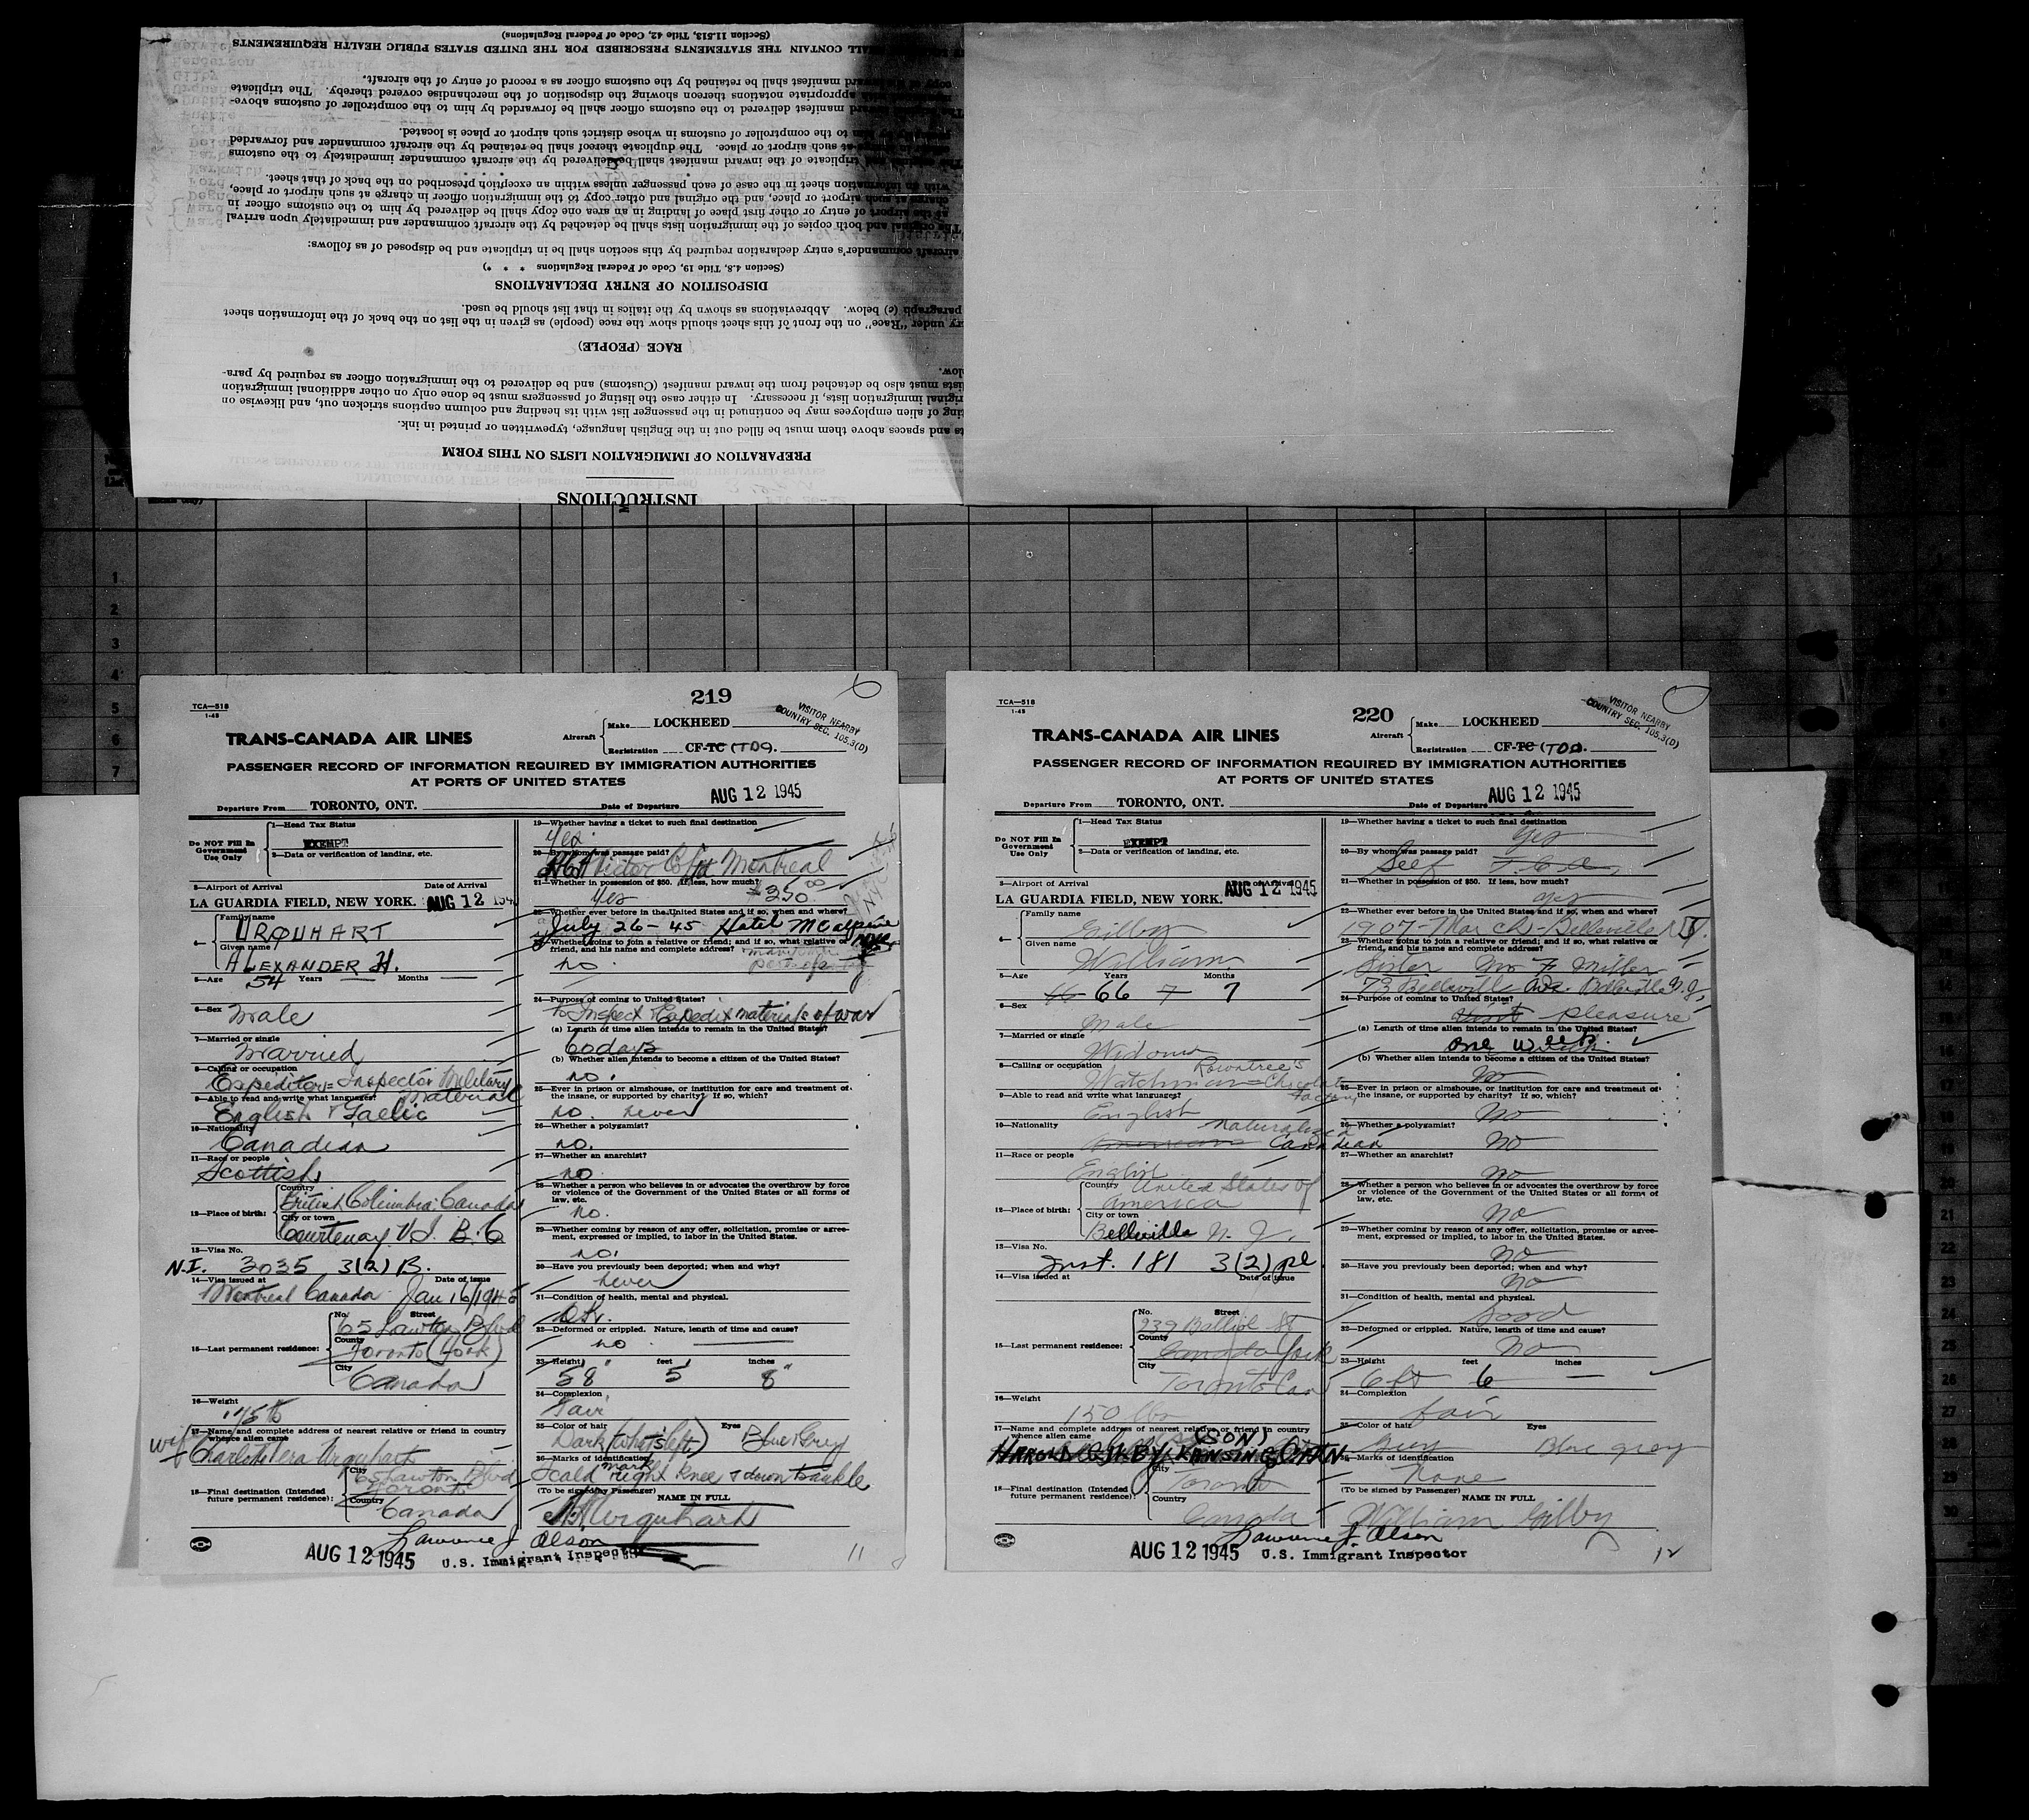 INSTRUCTIONS
PREPARATION OF IMMIGRATION LISTS ON THIS FORM
ts and spaces above them must be filled out in the English language, typewritten or printed in ink.
ting of alien employees may be continued in the passenger list with its heading and column captions stricken out, and likewise on
original immigration lists, if necessary. In either case the listing of passengers must be done only on other additional immigration
ists must also be detached from the inward manifest (Customs) and be delivered to the immigration officer as required by para-
low.
RACE (PEOPLE)
ry under "Race" on the front of this sheet should show the race (people) as given in the list on the back of the information sheet
paragraph (c) below. Abbreviations as shown by the italics in that list should be used.
DISPOSITION OF ENTRY DECLARATIONS
(Section 4.8, Title 19, Code of Federal Regulations * * *)
aircraft commander's entry declaration required by this section shall be in triplicate and be disposed of as follows:
The original and both copies of the immigration lists shall be detached by the aircraft commander and immediately upon arrival
at the airport of entry or other first place of landing in an area one copy shall be delivered by him to the customs officer in
charge at such airport or place, and the original and other copy to the immigration officer in charge at such airport or place,
with an information sheet in the case of each passenger unless within an exception prescribed on the back of that sheet.
triplicate of the inward manifest shall be delivered by the aircraft commander immediately to the customs
at such airport or place. The duplicate thereof shall be retained by the aircraft commander and forwarded
to the comptroller of customs in whose district such airport or place is located.
ward manifest delivered to the customs officer shall be forwarded by him to the comptroller of customs above-
appropriate notations thereon showing the disposition of the merchandise covered thereby. The triplicate
copy of the inward manifest shall be retained by the customs officer as a record of entry of the aircraft.
SHALL CONTAIN THE STATEMENTS PRESCRIBED FOR THE UNITED STATES PUBLIC HEALTH REQUIREMENTS
(Section 11.513, Title 42, Code of Federal Regulations)
1
2
3
4
5
6
7
TCA—518
1-45
219
VISITOR NEARBY
COUNTRY SEC. 105.3(D)
TRANS-CANADA AIR LINES
Aircraft
Make LOCKHEED
Registration CF-TC (TDG.
PASSENGER RECORD OF INFORMATION REQUIRED BY IMMIGRATION AUTHORITIES
AT PORTS OF UNITED STATES
Departure From TORONTO, ONT. Date of Departure AUG 12 1945
Do NOT Fill In
Government
Use Only
1—Head Tax Status
EXEMPT
2—Data or verification of landing, etc.
3—Airport of Arrival Date of Arrival
LA GUARDIA FIELD, NEW YORK. AUG 12 1945
4— Family name
URQUHART
Given name
ALEXANDER H.
5—Age 54 Years Months
6—Sex
Male
7—Married or single
Married
8—Calling or occupation
Expeditor = Inspector Military
Material
9—Able to read and write what languages?
English & Gaelic
10—Nationality
Canadian
11—Race or people
Scottish
12—Place of birth:
Country
British Columbia: Canada
City or town
Courtenay V.I. B.C
13—Visa No.
N.I. 3035 3(2) B.
14—Visa issued at Date of issue
Montreal Canada Jan 16/1945
15—Last permanent residence:
No. Street
65 Lawton Blvd
County
Toronto (York)
City
Canada
16—Weight
175 lb
17—Name and complete address of nearest relative or friend in country
whence alien came
wife
Charlotte Vera Urquhart
18—Final destination (Intended
future permanent residence):
City
65 Lawton Blvd
Toronto
Country
Canada
19—Whether having a ticket to such final destination
Yes
20—By whom was passage paid?
Victor Co Ltd Montreal
21—Whether in possession of $50. If less, how much?
Yes $250.00
22—Whether ever before in the United States and if so, when and where?
July 26-45 Hotel McAlpine
23—Whether going to join a relative or friend; and if so, what relative or
friend, and his name and complete address?
no
24—Purpose of coming to United States?
To Inspect & Expedite materials of war
(a) Length of time alien intends to remain in the United States?
60 days
(b) Whether alien intends to become a citizen of the United States?
no.
25—Ever in prison or almshouse, or institution for care and treatment of
the insane, or supported by charity? If so, which?
no. never
26—Whether a polygamist?
no.
27—Whether an anarchist?
no
28—Whether a person who believes in or advocates the overthrow by force
or violence of the Government of the United States or all forms of
law, etc.
no.
29—Whether coming by reason of any offer, solicitation, promise or agree-
ment, expressed or implied, to labor in the United States.
no.
30—Have you previously been deported; when and why?
never
31—Condition of health, mental and physical.
O.K.
32—Deformed or crippled. Nature, length of time and cause?
no
33—Height feet inches
58" 5 8"
34—Complexion
Fair
35—Color of hair Eyes
Dark (whats left) Blue: Grey
36—Marks of identification
Scald mark right knee & down to ankle
(To be signed by Passenger) NAME IN FULL
A H Urquhart
Lawrence J Olson
AUG 12 1945 U.S. Immigrant Inspector
11
TCA—518
1-45
220
VISITOR NEARBY
COUNTRY SEC. 105.3(D)
TRANS-CANADA AIR LINES
Aircraft
Make LOCKHEED
Registration CF-TC (TDG.
PASSENGER RECORD OF INFORMATION REQUIRED BY IMMIGRATION AUTHORITIES
AT PORTS OF UNITED STATES
Departure From TORONTO, ONT. Date of Departure AUG 12 1945
Do NOT Fill In
Government
Use Only
1—Head Tax Status
EXEMPT
2—Data or verification of landing, etc.
3—Airport of Arrival Date of Arrival
LA GUARDIA FIELD, NEW YORK. AUG 12 1945
4— Family name
Gilby
Given name
William
5—Age Years Months
66 66 7 7
6—Sex
Male
7—Married or single
Widow
8—Calling or occupation
Rowntree's
Watchman = Chocolate
Factory
9—Able to read and write what languages?
English
10—Nationality
Naturalized
American Canadian
11—Race or people
English
12—Place of birth:
Country
United States of
America
City or town
Belleville N. J.
13—Visa No.
Inst. 181 3(2) pl.
14—Visa issued at Date of issue
15—Last permanent residence:
No. Street
239 Balliol St
County
Canada York
City
Toronto Can
16—Weight
150 lbs
17—Name and complete address of nearest relative or friend in country
whence alien came
(SON)
HAROLD GILBY
18—Final destination (Intended
future permanent residence):
City
Toronto
Country
Canada
19—Whether having a ticket to such final destination
yes
20—By whom was passage paid?
Self
21—Whether in possession of $50. If less, how much?
yes
22—Whether ever before in the United States and if so, when and where?
1907 - March - Belleville N.J.
23—Whether going to join a relative or friend; and if so, what relative or
friend, and his name and complete address?
Sister Mrs F Miller
73 Belleville Ave. Belleville N.J.
24—Purpose of coming to United States?
Visit pleasure
(a) Length of time alien intends to remain in the United States?
one week
(b) Whether alien intends to become a citizen of the United States?
No
25—Ever in prison or almshouse, or institution for care and treatment of
the insane, or supported by charity? If so, which?
No
26—Whether a polygamist?
No
27—Whether an anarchist?
No
28—Whether a person who believes in or advocates the overthrow by force
or violence of the Government of the United States or all forms of
law, etc.
No
29—Whether coming by reason of any offer, solicitation, promise or agree-
ment, expressed or implied, to labor in the United States.
No
30—Have you previously been deported; when and why?
No
31—Condition of health, mental and physical.
Good
32—Deformed or crippled. Nature, length of time and cause?
No
33—Height feet inches
6 ft 6 —
34—Complexion
fair
35—Color of hair Eyes
Grey Blue grey
36—Marks of identification
None
(To be signed by Passenger) NAME IN FULL
William Gilby
Lawrence J Olson
AUG 12 1945 U.S. Immigrant Inspector
12